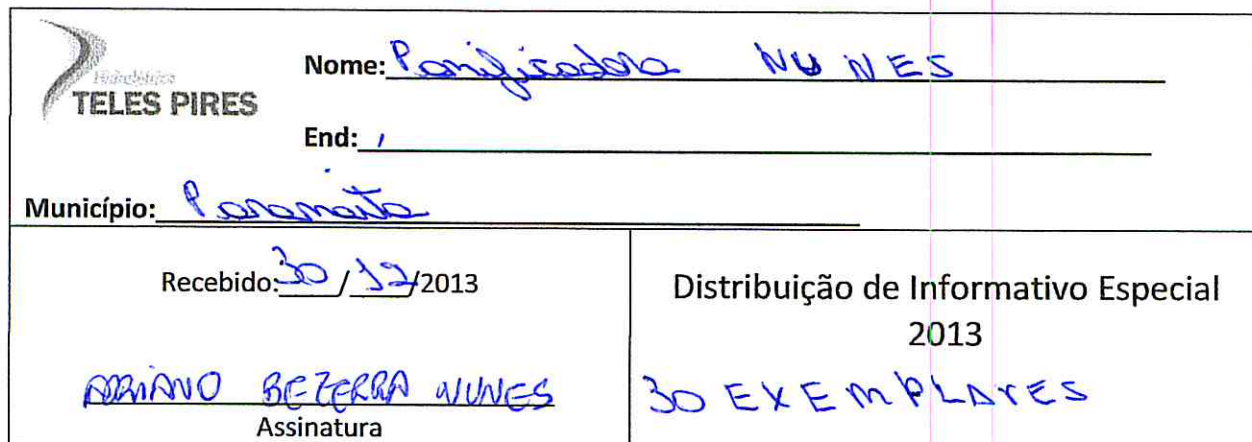 Hidrelétrica
TELES PIRES
Nome: Panificadora NUNES
End:
Município: Paranaita
Recebido: 30/12/2013
ADRIANO BEZERRA NUNES
Assinatura
Distribuição de Informativo Especial
2013
30 EXEMPLARES